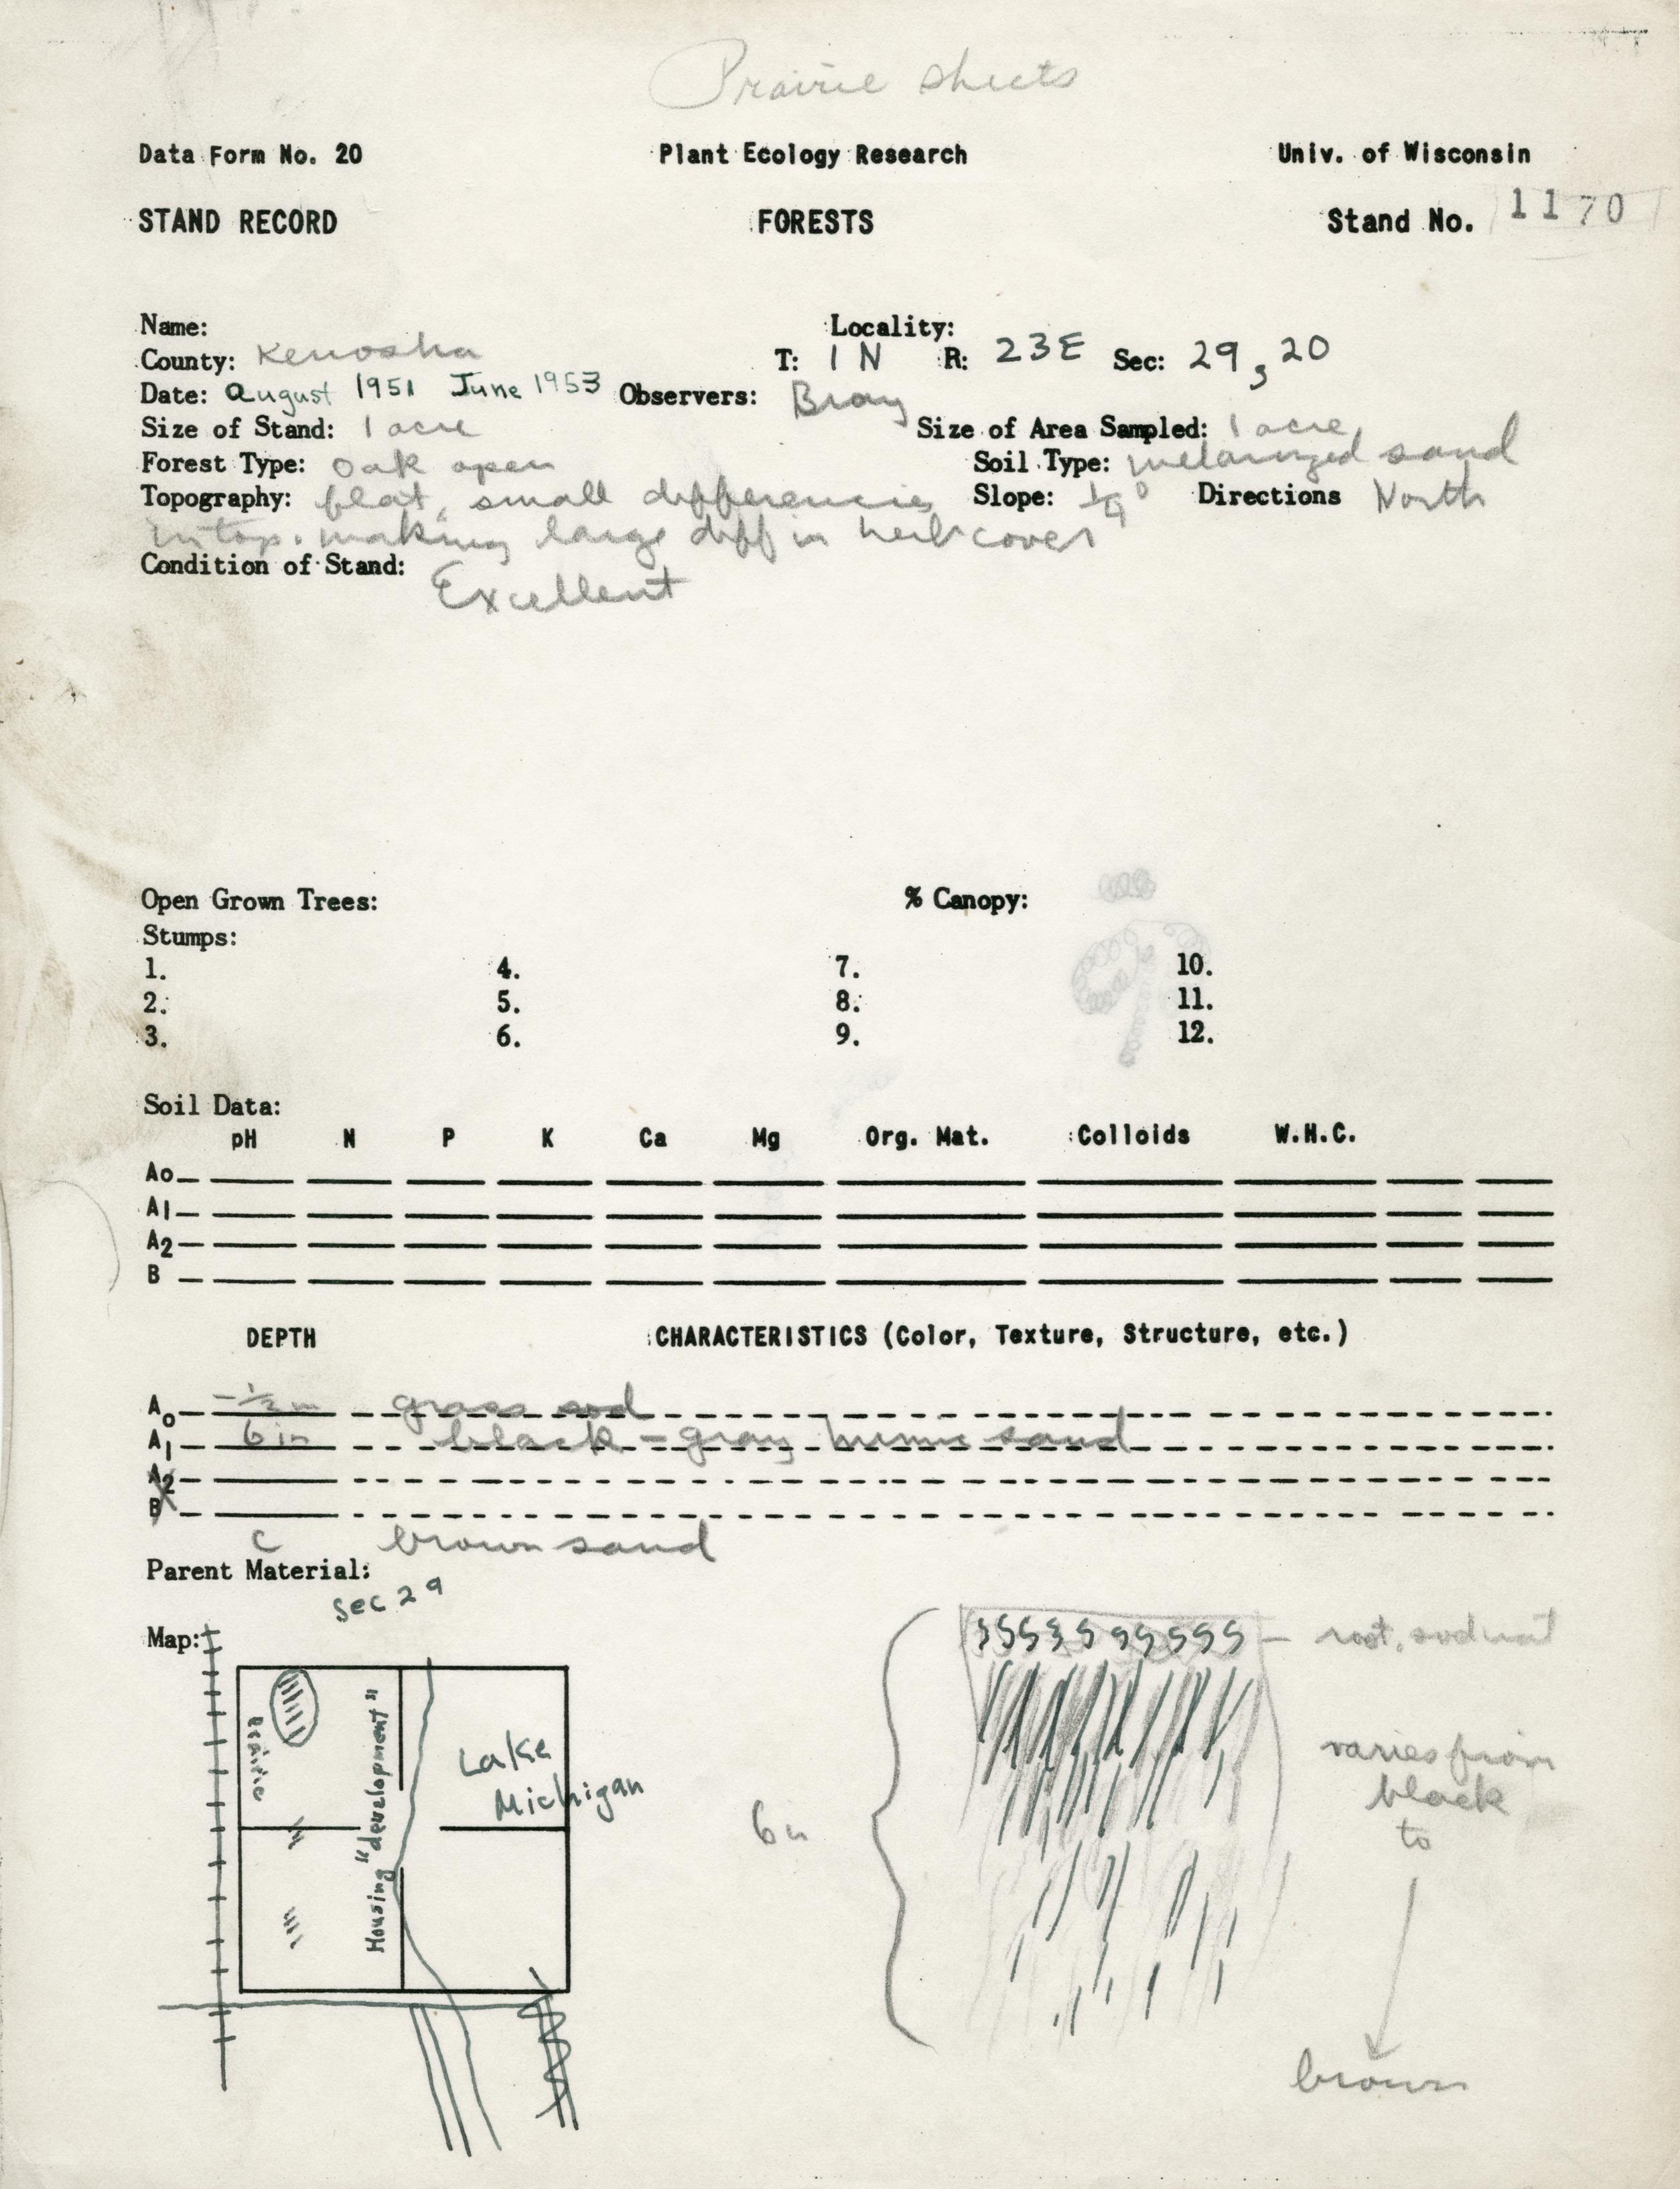 Prairie sheets
Data Form No. 20 Plant Ecology Research Univ. of Wisconsin
STAND RECORD FORESTS Stand No. 1170
Name: Locality:
County: Kenosha T: 1 N R: 23E Sec: 29, 20
Date: August 1951 June 1953 Observers: Bray
Size of Stand: 1 acre Size of Area Sampled: 1 acre
Forest Type: Oak open Soil Type: melanized sand
Topography: flat, small differences Slope: 1/4° Directions North
in top. making large diff in herb cover
Condition of Stand: Excellent
Open Grown Trees: % Canopy:
Stumps:
1. 4. 7. 10.
2. 5. 8. 11.
3. 6. 9. 12.
Soil Data:
pH N P K Ca Mg Org. Mat. Colloids W.H.C.
Ao
A1
A2
B
DEPTH CHARACTERISTICS (Color, Texture, Structure, etc.)
Ao -1/2 in grass sod
A1 6 in black - gray humic sand
A2
B
C brown sand
Parent Material:
Sec 29
Map:
Prairie
Housing "development"
Lake
Michigan
6 in
root, sod mat
varies from
black
to
brown